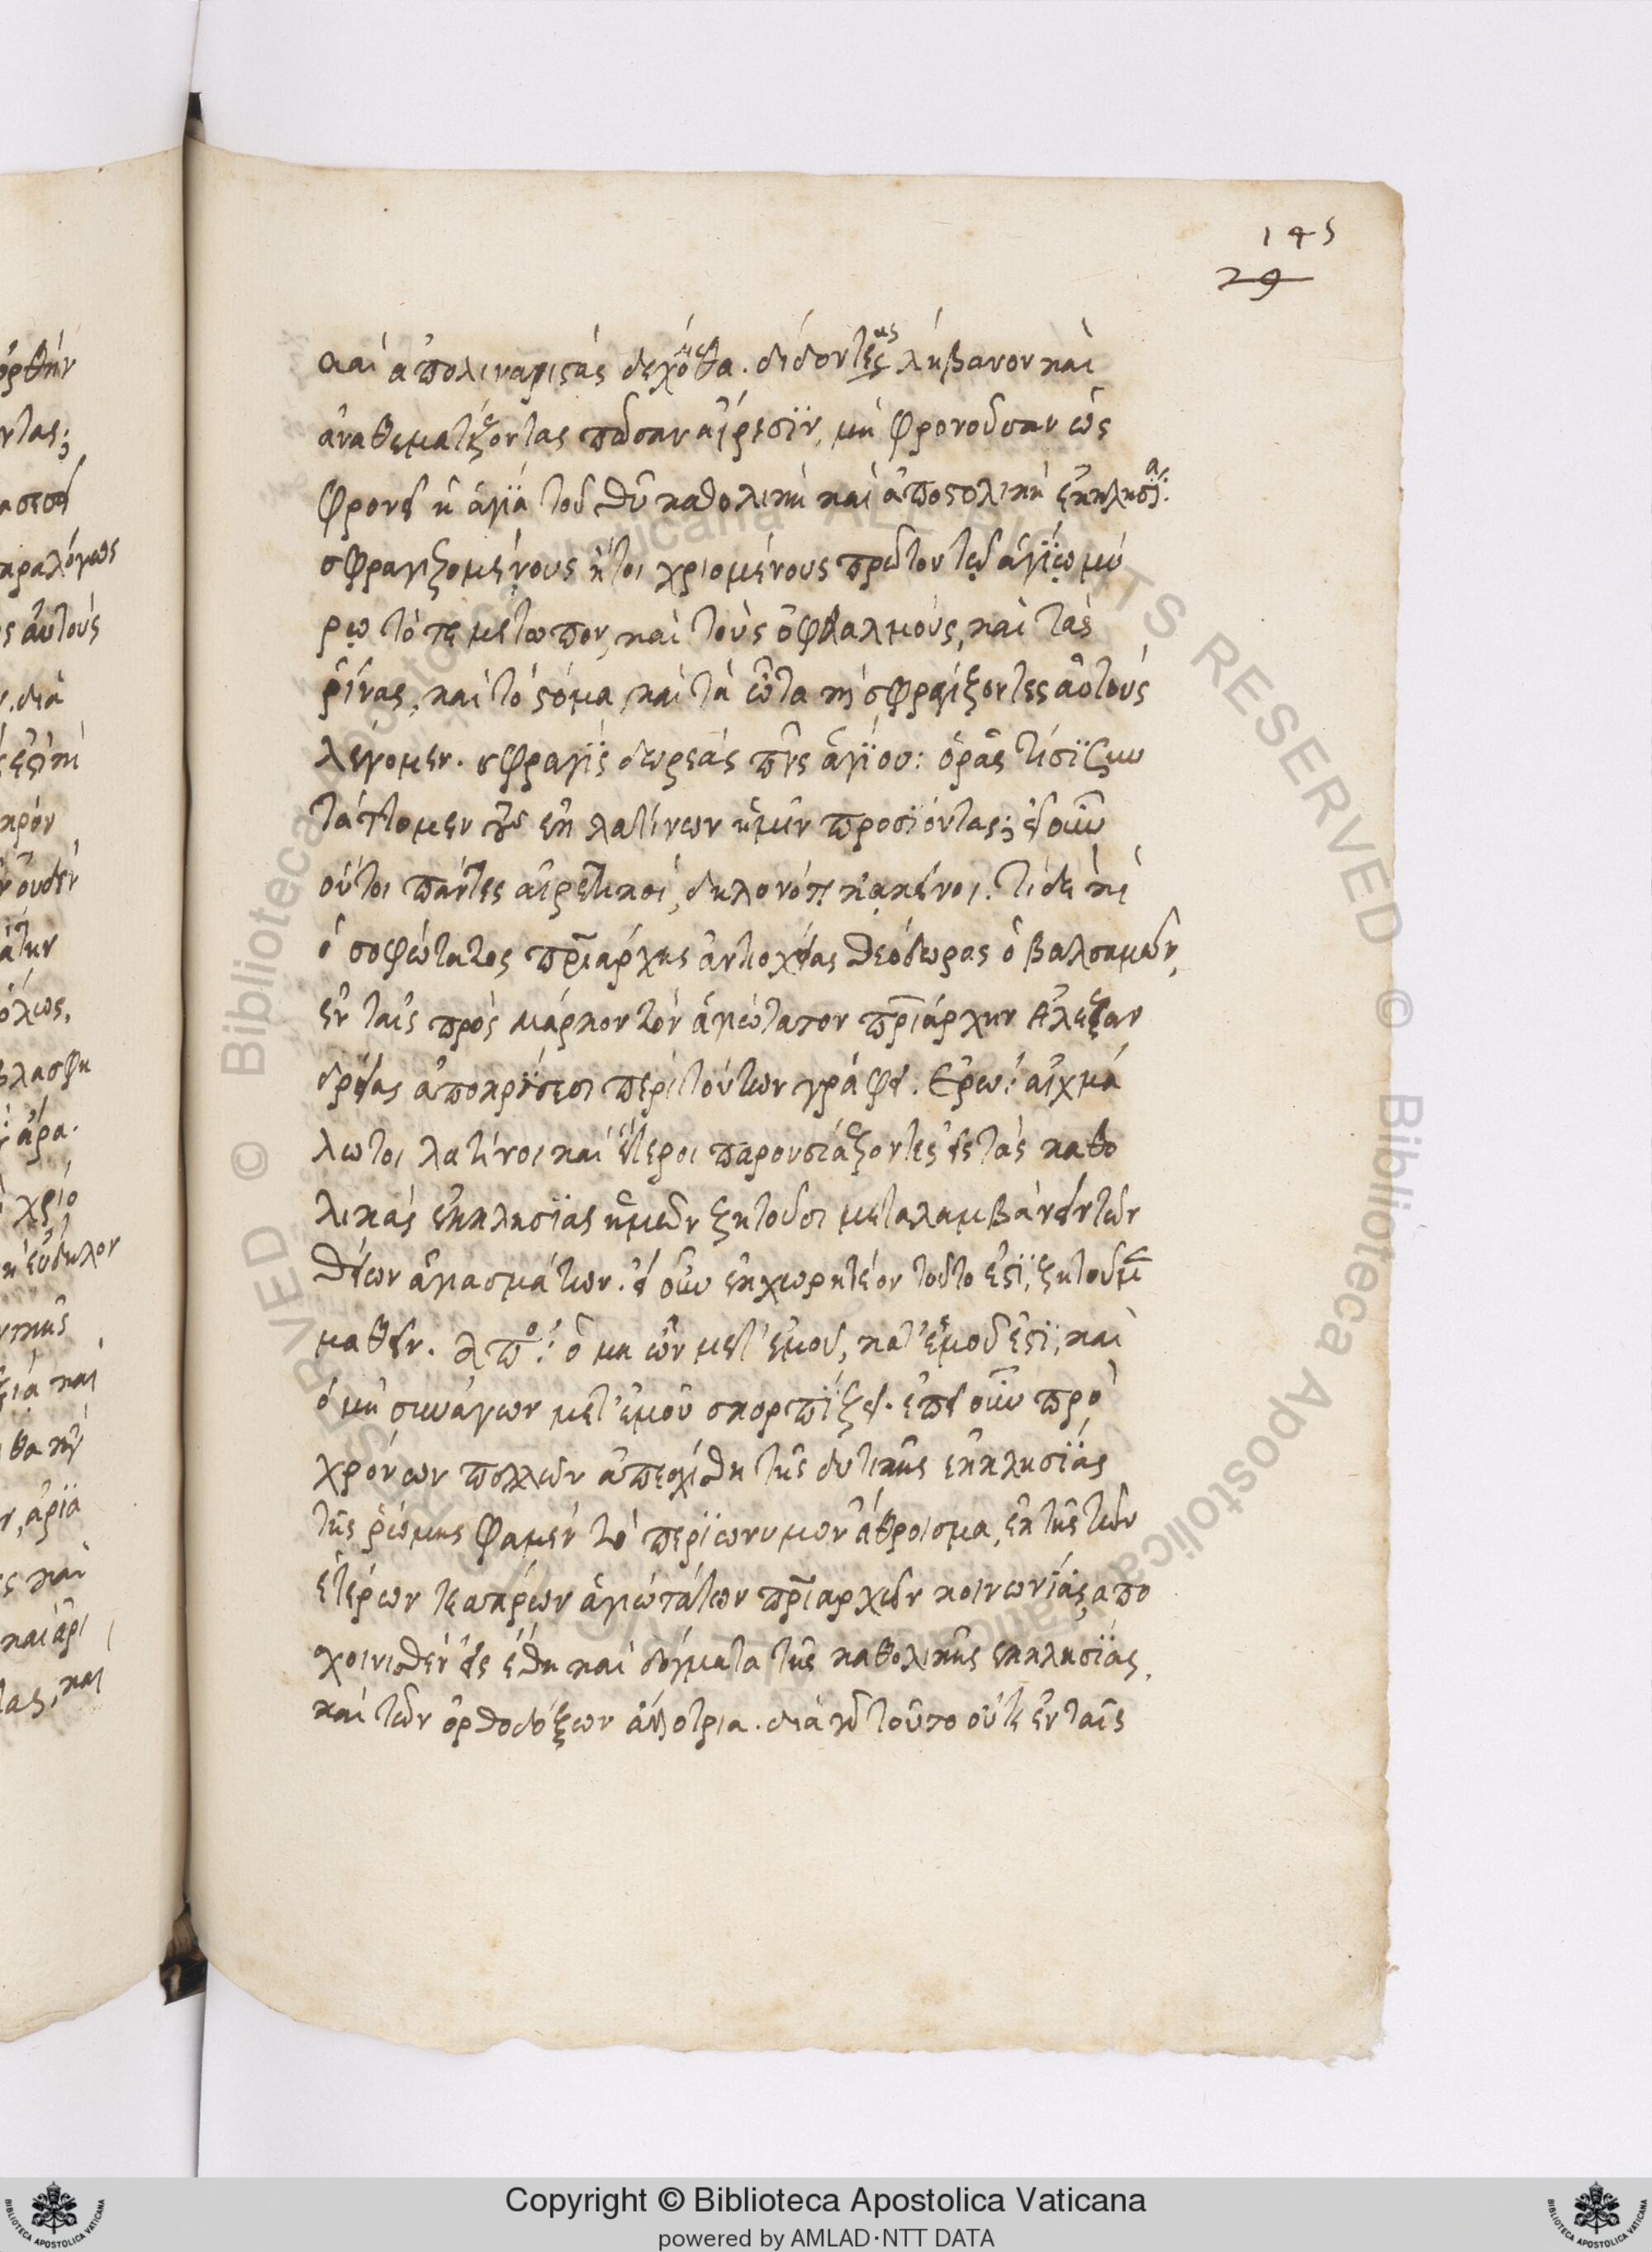 145
29
καὶ ἀπολιναριστὰς δεχόμεθα. διδόντες ας λήβανον καὶ
ἀναθεματίζοντας πᾶσαν αἵρεσϊν, μὴ φρονοῦσαν ὡς
φρονεῖ ἡ ἁγϊά τοῦ θῦ καθολικὴ καὶ ἀποστολικὴ ἐκκλησΐα:
σφραγιζομένους ἤτοι χριομένους πρῶτον τῷ ἁγΐῳ μύ
ρῳ τό τε μέτωπον, καὶ τοὺς ὀφθαλμούς, καὶ τὰς
ῥίνας, καὶ τὸ στόμα, καὶ τὰ ὦτα κὴ σφραγίζοντες αὐτοὺς
λέγομεν. σφραγῒς δωρεὰς πνς ἁγΐου: ὁρᾶς τίσϊ συν
τάττομεν τοὺς ἐκ λατίνων ἡμῖν προσϊόντας; εἰ οὖν
οὗτοι πάντες αἱρετικοί, δηλονότι κἀκεῖνοι. τί δε κὶ
ὁ σοφώτατος πριάρχης ἀντιοχείας θεόδωρος ὁ βαλσαμῶν,
ἐν ταῖς πρὸς μάρκον τὸν ἁγιώτατον πριάρχην Ἀλεξαν
δρείας ἀποκρίσεσι περὶ τούτων γράφει. Ἐρω: αἰχμά
λωτοι λατίνοι καὶ ἕτεροι παρουσιάζοντες εἰς τὰς καθο
λικὰς ἐκκλησΐας ἡμῶν ζητοῦσι μεταλαμβάνειν τῶν
θείων ἁγιασμάτων. εἰ οὖν ἐκχωρητέον τοῦτο ἐστΐ, ζητοῦμεν
μαθεῖν. Ἀπο: ὁ μὴ ὢν μετ' ἐμοῦ, κατ' ἐμοῦ ἐστΐ, καὶ
ὁ μὴ συνάγων μετ' ἐμοῦ σκορπΐζει. ἐπεὶ οὖν πρὸ
χρόνων πολλῶν ἀπεσχίσθη τῆς δυτικῆς ἐκκλησΐας
τῆς ῥώμης φαμὲν τὸ περϊώνυμον ἄθροισμα, ἐκ τῆς τῶν
ἑτέρων τεσσάρων ἁγιωτάτων πριαρχῶν κοινωνΐας, ἀπο
χοινισθὲν εἰς ἔθη καὶ δόγματα τῆς καθολικῆς ἐκκλησΐας,
καὶ τῶν ὀρθοδόξων ἀλλότρια. διὰ τοῦτο οὔτε ἐν ταῖς
Copyright © Biblioteca Apostolica Vaticana
powered by AMLAD·NTT DATA